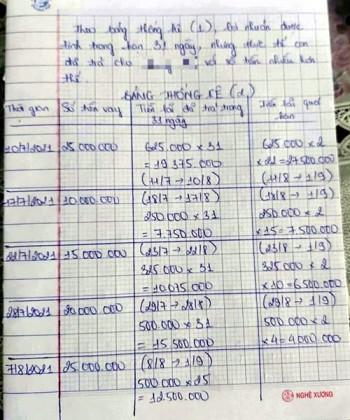 Theo bảng thống kê (1), lãi nhuận được
tính trong hạn 31 ngày, nhưng thực tế con
đã trả cho với số tiền nhiều hơn
thế.
BẢNG THỐNG KÊ (2)
Thời gian Số tiền vay Tiền lãi đã trả trong 31 ngày Tiền lãi quá hạn
10/7/2021 25 000 000 625.000 x 31 625.000 x 2
= 19 375.000 x 22 = 27 500.000
(11/7 → 10/8) (11/8 → 1/9)
17/7/2021 10.000.000 (18/7 → 17/8) (18/8 → 1/9)
250.000 x 31 250.000 x 2
= 7.750.000 x 15 = 7.500.000
22/7/2021 15 000 000 (23/7 → 22/8) (23/8 → 1/9)
325.000 x 31 325.000 x 2
= 10.075.000 x 10 = 6.500.000
28/7/2021 20 000 000 (29/7 → 28/8) (29/8 → 1/9)
500.000 x 31 500.000 x 2
= 15 500.000 x 4 = 4.000.000
7/8/2021 25.000.000 (8/8 → 1/9)
500.000 x 25
= 12.500.000
NGHỆ XƯƠNG